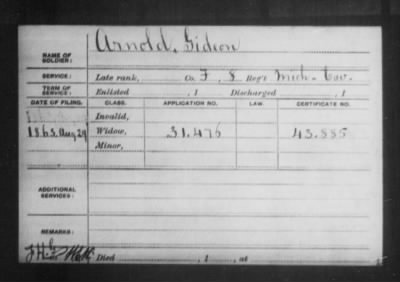 NAME OF SOLDIER: Arnold, Gideon
SERVICE: Late rank, Co. F, 8 Reg't Mich. Cav.
TERM OF SERVICE: Enlisted , 1 Discharged , 1
DATE OF FILING. CLASS. APPLICATION NO. LAW. CERTIFICATE NO.
Invalid,
1863, Aug 29 Widow, 31.476 43.885
Minor,
ADDITIONAL SERVICES:
REMARKS:
Died , 1 , at